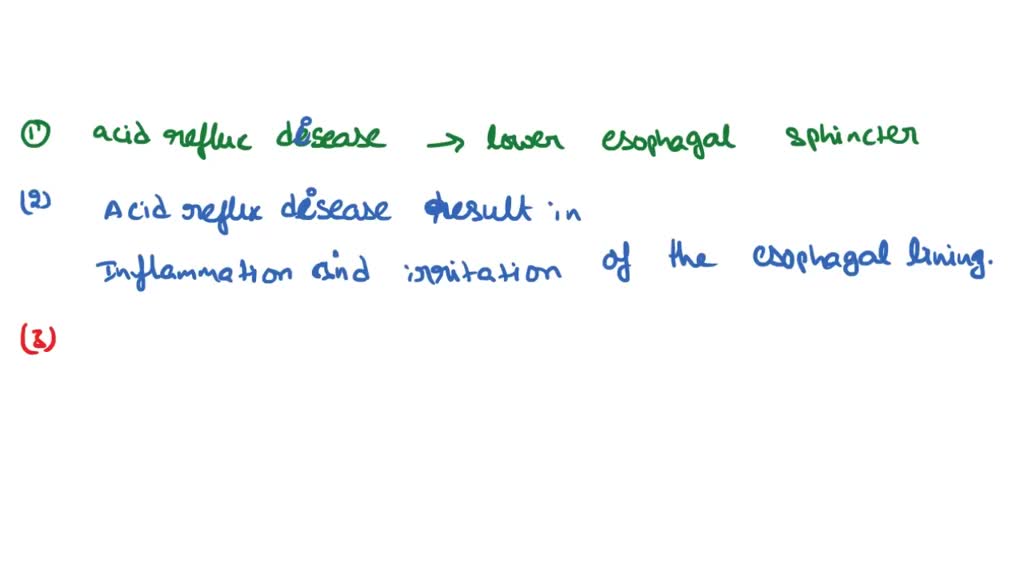 (1) acid reflux disease → lower esophagal sphincter
(2) Acid reflux disease result in
Inflammation and irritation of the esophagal lining.
(3)